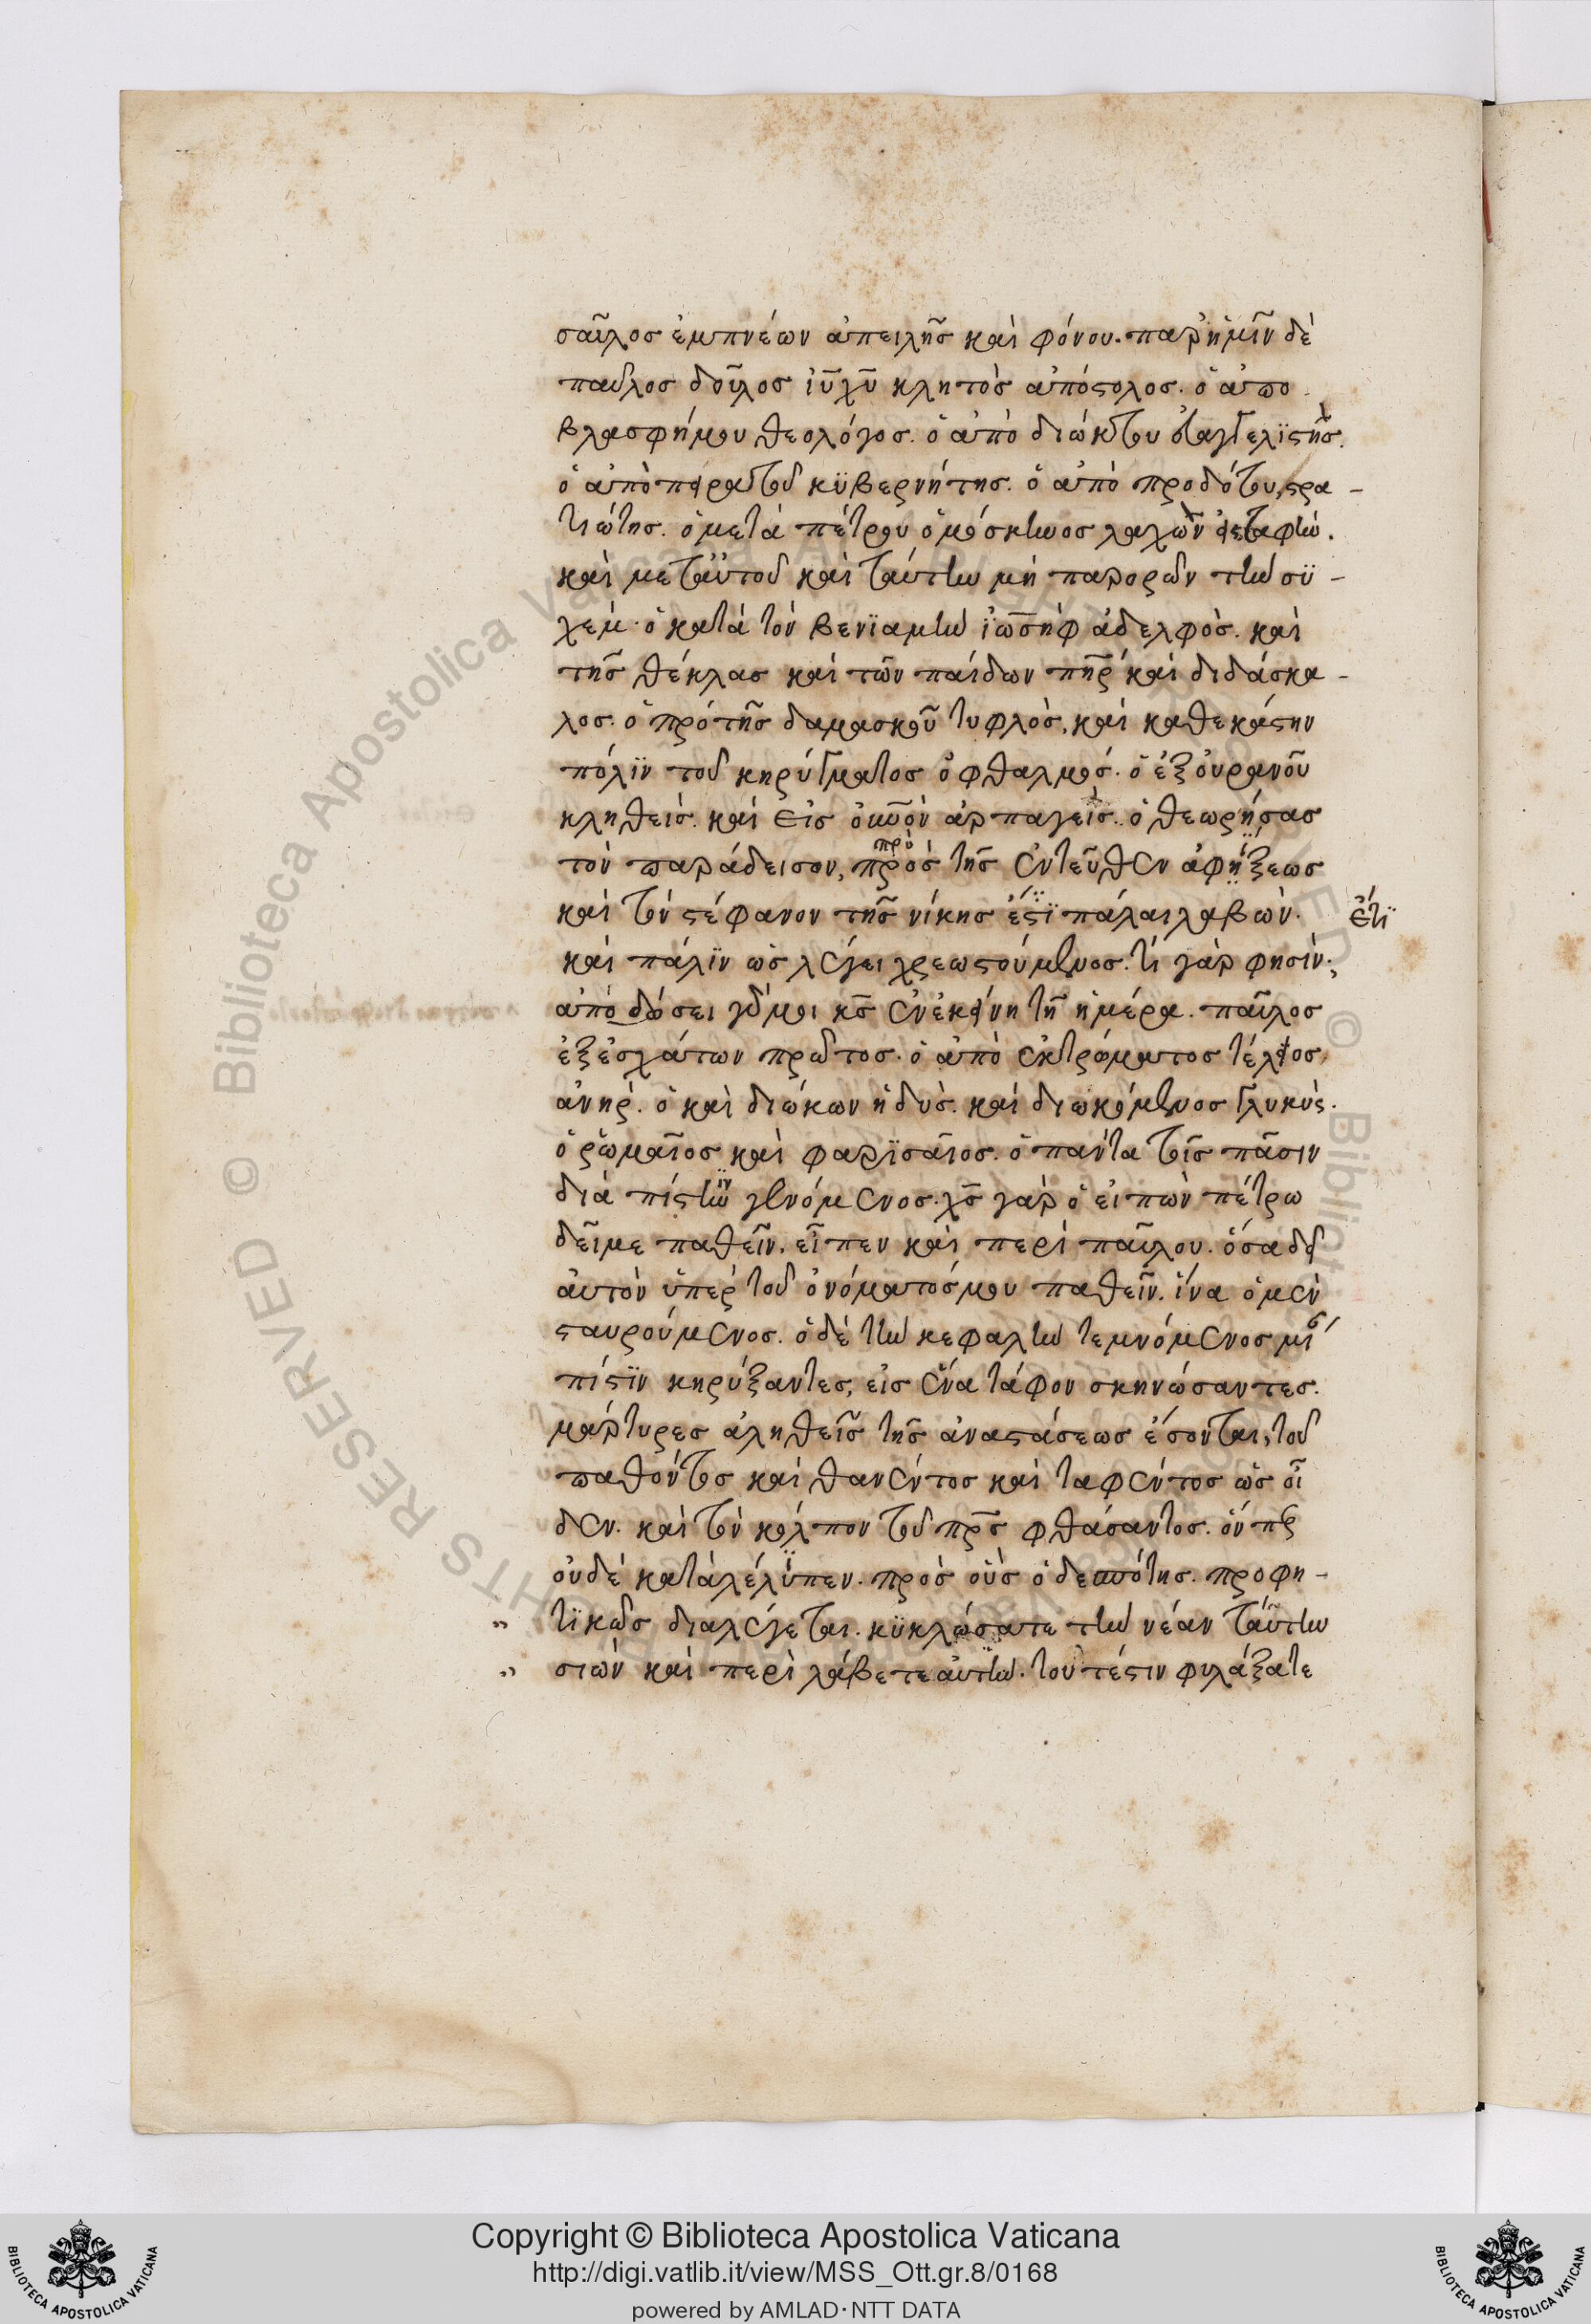 σαῦλος ἐμπνέων ἀπειλῆς καὶ φόνου. παρ' ἡμῖν δὲ
παῦλος δοῦλος ἰῦ χῦ κλητὸς ἀπόστολος. ὁ ἀπο
βλασφήμου θεολόγος. ὁ ἀπὸ διώκτου εὐαγγελϊστὴς.
ὁ ἀπὸ πειρατοῦ κϋβερνήτης. ὁ ἀπὸ προδότου, στρα -
τιώτης. ὁ μετὰ πέτρου ὁμόσκηνος λαχὼν
καὶ μετ' αὐτοῦ καὶ ταύτην μὴ παρορῶν τὴν σϋ -
χέμ. ὁ κατὰ τὸν βενϊαμὶν ἰωσὴφ ἀδελφὸς. καὶ
τῆς θέκλας καὶ τῶν παίδων πῆρ καὶ διδάσκα -
λος. ὁ πρὸ τῆς δαμασκοῦ τυφλὸς, καὶ καθεκάστην
πόλϊν τοῦ κηρύγματος ὀφθαλμός. ὁ ἐξ οὐρανοῦ
κληθεὶς. καὶ εἰς οὐνὸν ἁρπαγεὶς. ὁ θεωρήσας
τὸν παράδεισον, πρὸς πρὸ τῆς ἐντεῦθεν ἀφήξεως
καὶ τὸν στέφανον τῆς νίκης ἔστϊ πάλαι λαβὼν.
ἔτϊ
καὶ πάλϊν ὡς λέγει χρεωστούμενος. τί γάρ φησίν;
ἀποδώσει γάρ μοι κς ἐν ἐκείνη τῆ ἡμέρα. παῦλος
ἐξ ἐσχάτων πρῶτος. ὁ ἀπὸ ἐκτρώματος τέλειος
ἀνήρ. ὁ καὶ διώκων ἡδὺς. καὶ διωκόμενος γλυκὺς.
ὁ ῥωμαῖος καὶ φαρϊσαῖος. ὁ πάντα τοῖς πᾶσιν
διὰ πίστϊν γενόμενος. χς γὰρ ὁ εἰπὼν πέτρω
δεῖ με παθεῖν. εἶπεν καὶ περὶ παῦλου. ὅσα δεῖ
αὐτὸν ὑπὲρ τοῦ ὀνόματός μου παθεῖν. ἵνα ὁ μὲν
σταυρούμενος. ὁ δὲ τὴν κεφαλὴν τεμνόμενος μί
πίστϊν κηρύξαντες, εἰς ἕνα τάφον σκηνώσαντες.
μάρτυρες ἀληθεῖς τῆς ἀναστάσεως ἔσονται, τοῦ
παθόντος καὶ θανέντος καὶ ταφέντος ὡς οἶ
δεν. καὶ τὸν κόλπον τοῦ πρς φθάσαντος. ὅνπερ
οὐδὲ κατὰλέλϋπεν. πρὸς οὓς ὁ δεσπότης. προφη -
" τϊκῶς διαλέγεται. κϋκλώσατε τὴν νέαν ταύτην
" σιὼν καὶ περὶ λάβετε αὐτὴν. τουτέστιν φυλάξατε
Copyright © Biblioteca Apostolica Vaticana
http://digi.vatlib.it/view/MSS_Ott.gr.8/0168
powered by AMLAD·NTT DATA